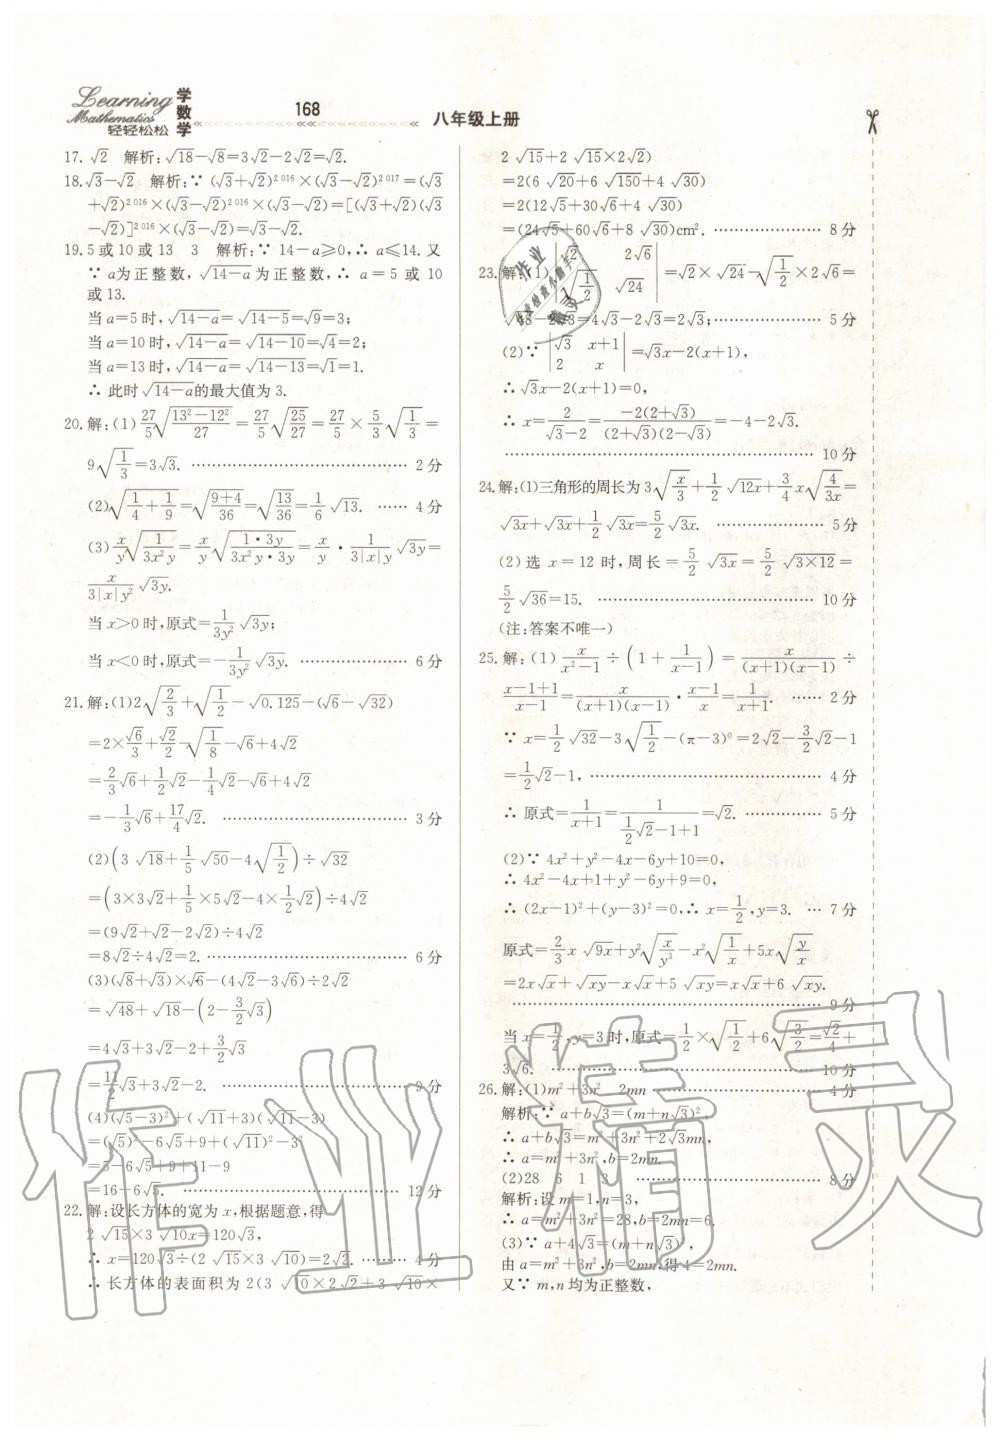 Learning
Mathematics
轻轻松松
学数学
168
八年级上册
17. √2 解析:√18−√8=3√2−2√2=√2.
18. √3−√2 解析:∵ (√3+√2)^2 016×(√3−√2)^2 017=(√3
+√2)^2 016×(√3−√2)^2 016×(√3−√2)=[(√3+√2)(√3
−√2)]^2 016×(√3−√2)=√3−√2.
19. 5 或 10 或 13 3 解析:∵ 14−a≥0,∴ a≤14. 又
∵ a为正整数,√(14−a) 为正整数,∴ a = 5 或 10
或 13.
当 a=5 时,√(14−a)=√(14−5)=√9=3;
当 a=10 时,√(14−a)=√(14−10)=√4=2;
当 a=13 时,√(14−a)=√(14−13)=√1=1.
∴ 此时√(14−a)的最大值为 3.
20. 解:(1) 27/5 √((13²−12²)/27) = 27/5 √(25/27) = 27/5 × 5/3 √(1/3) =
9√(1/3)=3√3. ………… 2 分
(2)√(1/4+1/9)=√((9+4)/36)=√(13/36)=1/6 √13. …… 4 分
(3) x/y √(1/(3x²y)) = x/y √((1·3y)/(3x²y·3y)) = x/y · 1/(3|x|y) √3y=
x/(3|x|y²) √3y.
当 x>0 时,原式=1/(3y²) √3y;
当 x<0 时,原式=−1/(3y²) √3y. ………… 6 分
21. 解:(1)2√(2/3)+√(1/2)−√0.125−(√6−√32)
=2×√6/3+√2/2−√(1/8)−√6+4√2
=2/3√6+1/2√2−1/4√2−√6+4√2
=−1/3√6+17/4√2. ………… 3 分
(2)(3√18+1/5√50−4√(1/2))÷√32
=(3×3√2+1/5×5√2−4×1/2√2)÷4√2
=(9√2+√2−2√2)÷4√2
=8√2÷4√2=2. ………… 6 分
(3)(√8+√3)×√6−(4√2−3√6)÷2√2
=√48+√18−(2−3/2√3)
=4√3+3√2−2+3/2√3
=11/2√3+3√2−2. ………… 9 分
(4)(√5−3)²+(√11+3)(√11−3)
=(√5)²−6√5+9+(√11)²−3²
=5−6√5+9+11−9
=16−6√5. ………… 12 分
22. 解:设长方体的宽为 x,根据题意,得
2√15×3√10x=120√3,
∴ x=120√3÷(2√15×3√10)=2√2. ……… 4 分
∴ 长方体的表面积为 2(3√10×2√2+3√10×
2√15+2√15×2√2)
=2(6√20+6√150+4√30)
=2(12√5+30√6+4√30)
=(24√5+60√6+8√30)cm². ………… 8 分
23. 解:(1)|√2 2√6
√(1/2) √24|=√2×√24−√(1/2)×2√6=
√48−2√3=4√3−2√3=2√3; ………… 5 分
(2)∵ |√3 x+1
2 x|=√3x−2(x+1),
∴ √3x−2(x+1)=0,
∴ x=2/(√3−2)=−2(2+√3)/((2+√3)(2−√3))=−4−2√3.
………… 10 分
24. 解:(1)三角形的周长为 3√(x/3)+1/2√12x+3/4 x√(4/3x)=
√3x+√3x+1/2√3x=5/2√3x. ………… 5 分
(2) 选 x = 12 时,周长 = 5/2 √3x = 5/2 √(3×12) =
5/2√36=15. ………… 10 分
(注:答案不唯一)
25. 解:(1) x/(x²−1) ÷ (1+1/(x−1)) = x/((x+1)(x−1)) ÷
(x−1+1)/(x−1)=x/((x+1)(x−1))·(x−1)/x=1/(x+1). …… 2 分
∵ x=1/2√32−3√(1/2)−(π−3)⁰=2√2−3/2√2−1
=1/2√2−1, ………… 4 分
∴ 原式=1/(x+1)=1/(1/2√2−1+1)=√2. ………… 5 分
(2)∵ 4x²+y²−4x−6y+10=0,
∴ 4x²−4x+1+y²−6y+9=0,
∴ (2x−1)²+(y−3)²=0,∴ x=1/2,y=3. … 7 分
原式=2/3 x√9x+y²√(x/y³)−x²√(1/x)+5x√(y/x)
=2x√x+√xy−x√x+5√xy=x√x+6√xy.
………… 9 分
当 x=1/2,y=3时,原式=1/2×√(1/2)+6√(3/2)=√2/4+
3√6. ………… 10 分
26. 解:(1)m²+3n² 2mn ………… 4 分
解析:∵ a+b√3=(m+n√3)²,
∴ a+b√3=m²+3n²+2√3mn,
∴ a=m²+3n²,b=2mn.
(2)28 6 1 3 ………… 8 分
解析:设 m=1,n=3,
∴ a=m²+3n²=28,b=2mn=6.
(3)∵ a+4√3=(m+n√3)²,
由 a=m²+3n²,b=2mn,得 4=2mn.
又∵ m,n 均为正整数,
作业精灵
作业
精灵